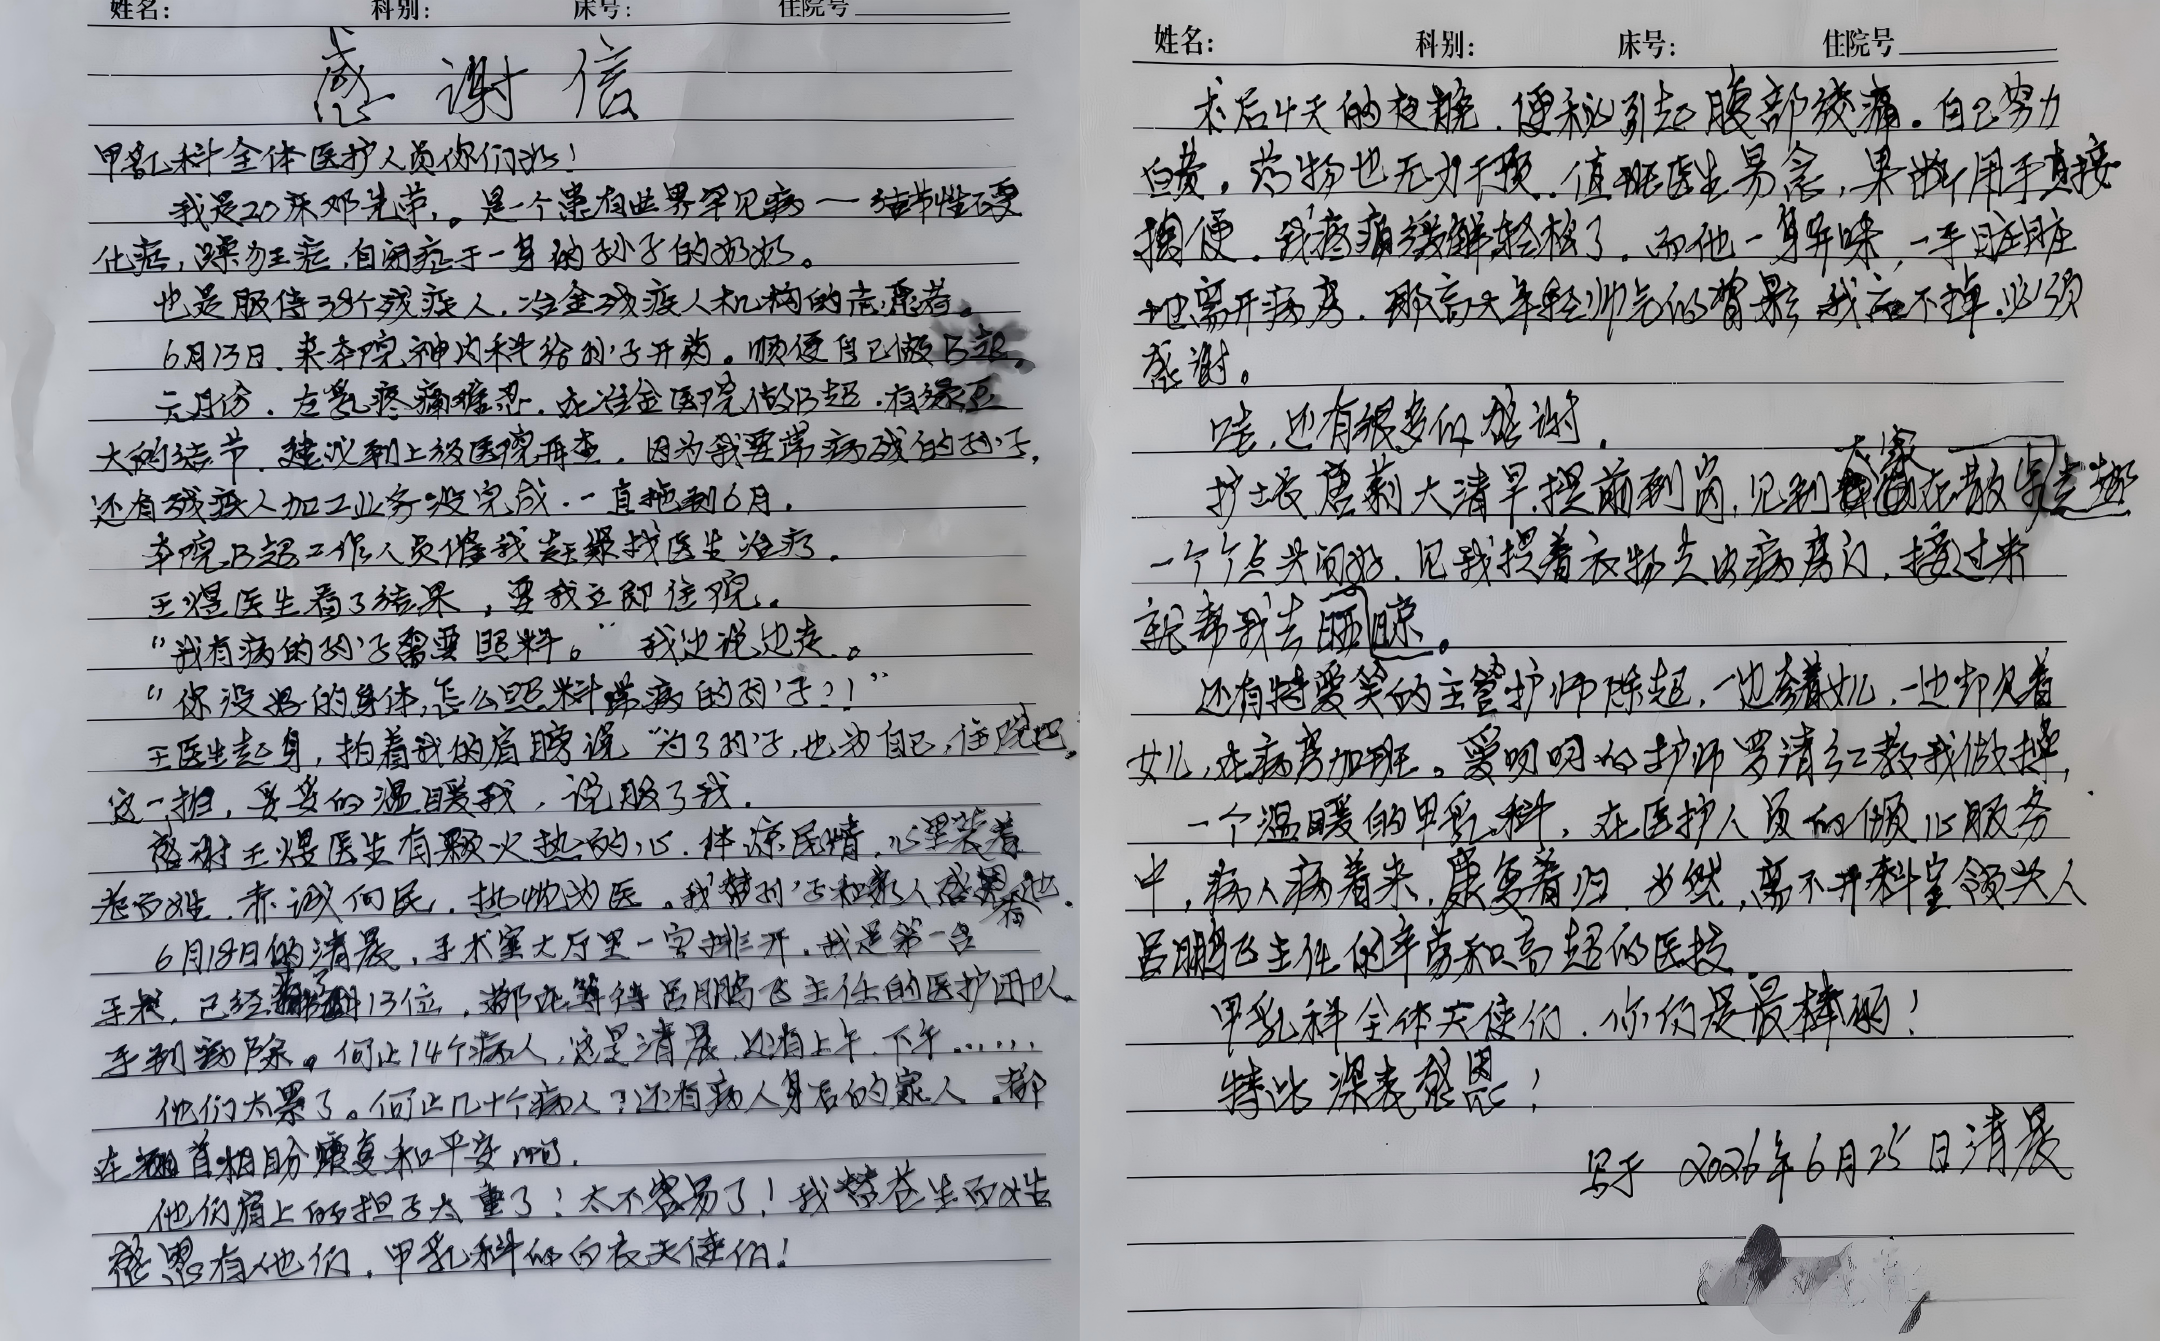 姓名: 科别: 床号: 住院号
感谢信
甲乳科全体医护人员你们好!
我是20床邓先荣,。是一个患有世界罕见病一结节性硬
化症,躁狂症,自闭症于一身的孙子的奶奶。
也是服侍38个残疾人,冶金残疾人机构的志愿者。
6月13日,来本院神内科给孙子开药。顺便自己做B超。
元月份,左乳疼痛难忍,在冶金医院做B超,有绿豆
大的结节,建议到上级医院再查,因为我要带病残的孙子,
还有残疾人加工业务没完成,一直拖到6月.
本院B超工作人员催我赶紧找医生治疗.
王煜医生看了结果,要我立即住院。
“我有病的孙子需要照料。”我边说边走.。
“你没好的身体,怎么照料带病的孙子?!”
王医生起身,拍着我的肩膀说“为了孙子,也为自己,住院吧,
这一拍,妥妥的温暖我,说服了我.
感谢王煜医生有颗火热的心.体凉民情,心里装着
老百姓.赤诚向民.热忱为医.我替孙子和家人感恩有他.
6月18日的清晨,手术室大厅里一字排开.我是第一台
手术,已经来了13位,都在等待吕朋鹏飞主任的医护团队
手到病除。何止14个病人,这是清晨,还有上午.下午……
他们太累了。何止几十个病人?还有病人身后的家人.都
在翘首相盼康复和平安啊.
他们肩上的担子太重了!太不容易了!我替苍生百姓
感恩有他们,甲乳科的白衣天使们!
姓名: 科别: 床号: 住院号
术后4天的夜晚.便秘引起腹部绞痛.自己努力
白费,药物也无力干预.值班医生易念,果断用手直接
掏便.我疼痛缓解轻松了.而他一身异味,一手脏脏
地离开病房.那高大年轻帅气的背影我忘不掉.必须
感谢。
哇,还有很多的感谢.
护士长唐莉大清早提前到岗,见到大家在散步走趟
一个个点头问好.见我提着衣物走出病房门,接过来
就帮我去晒晾。
还有特爱笑的主管护师陈超,一边牵着女儿,一边带着
女儿,在病房加班。爱叨叨的护师罗清红教我做操,
一个温暖的甲乳科,在医护人员的倾心服务
中,病人病着来,康复着归.当然,离不开科室领头人
吕鹏飞主任的辛劳和高超的医技.
甲乳科全体天使们.你们是最棒的!
特此深表感恩!
写于2026年6月25日清晨